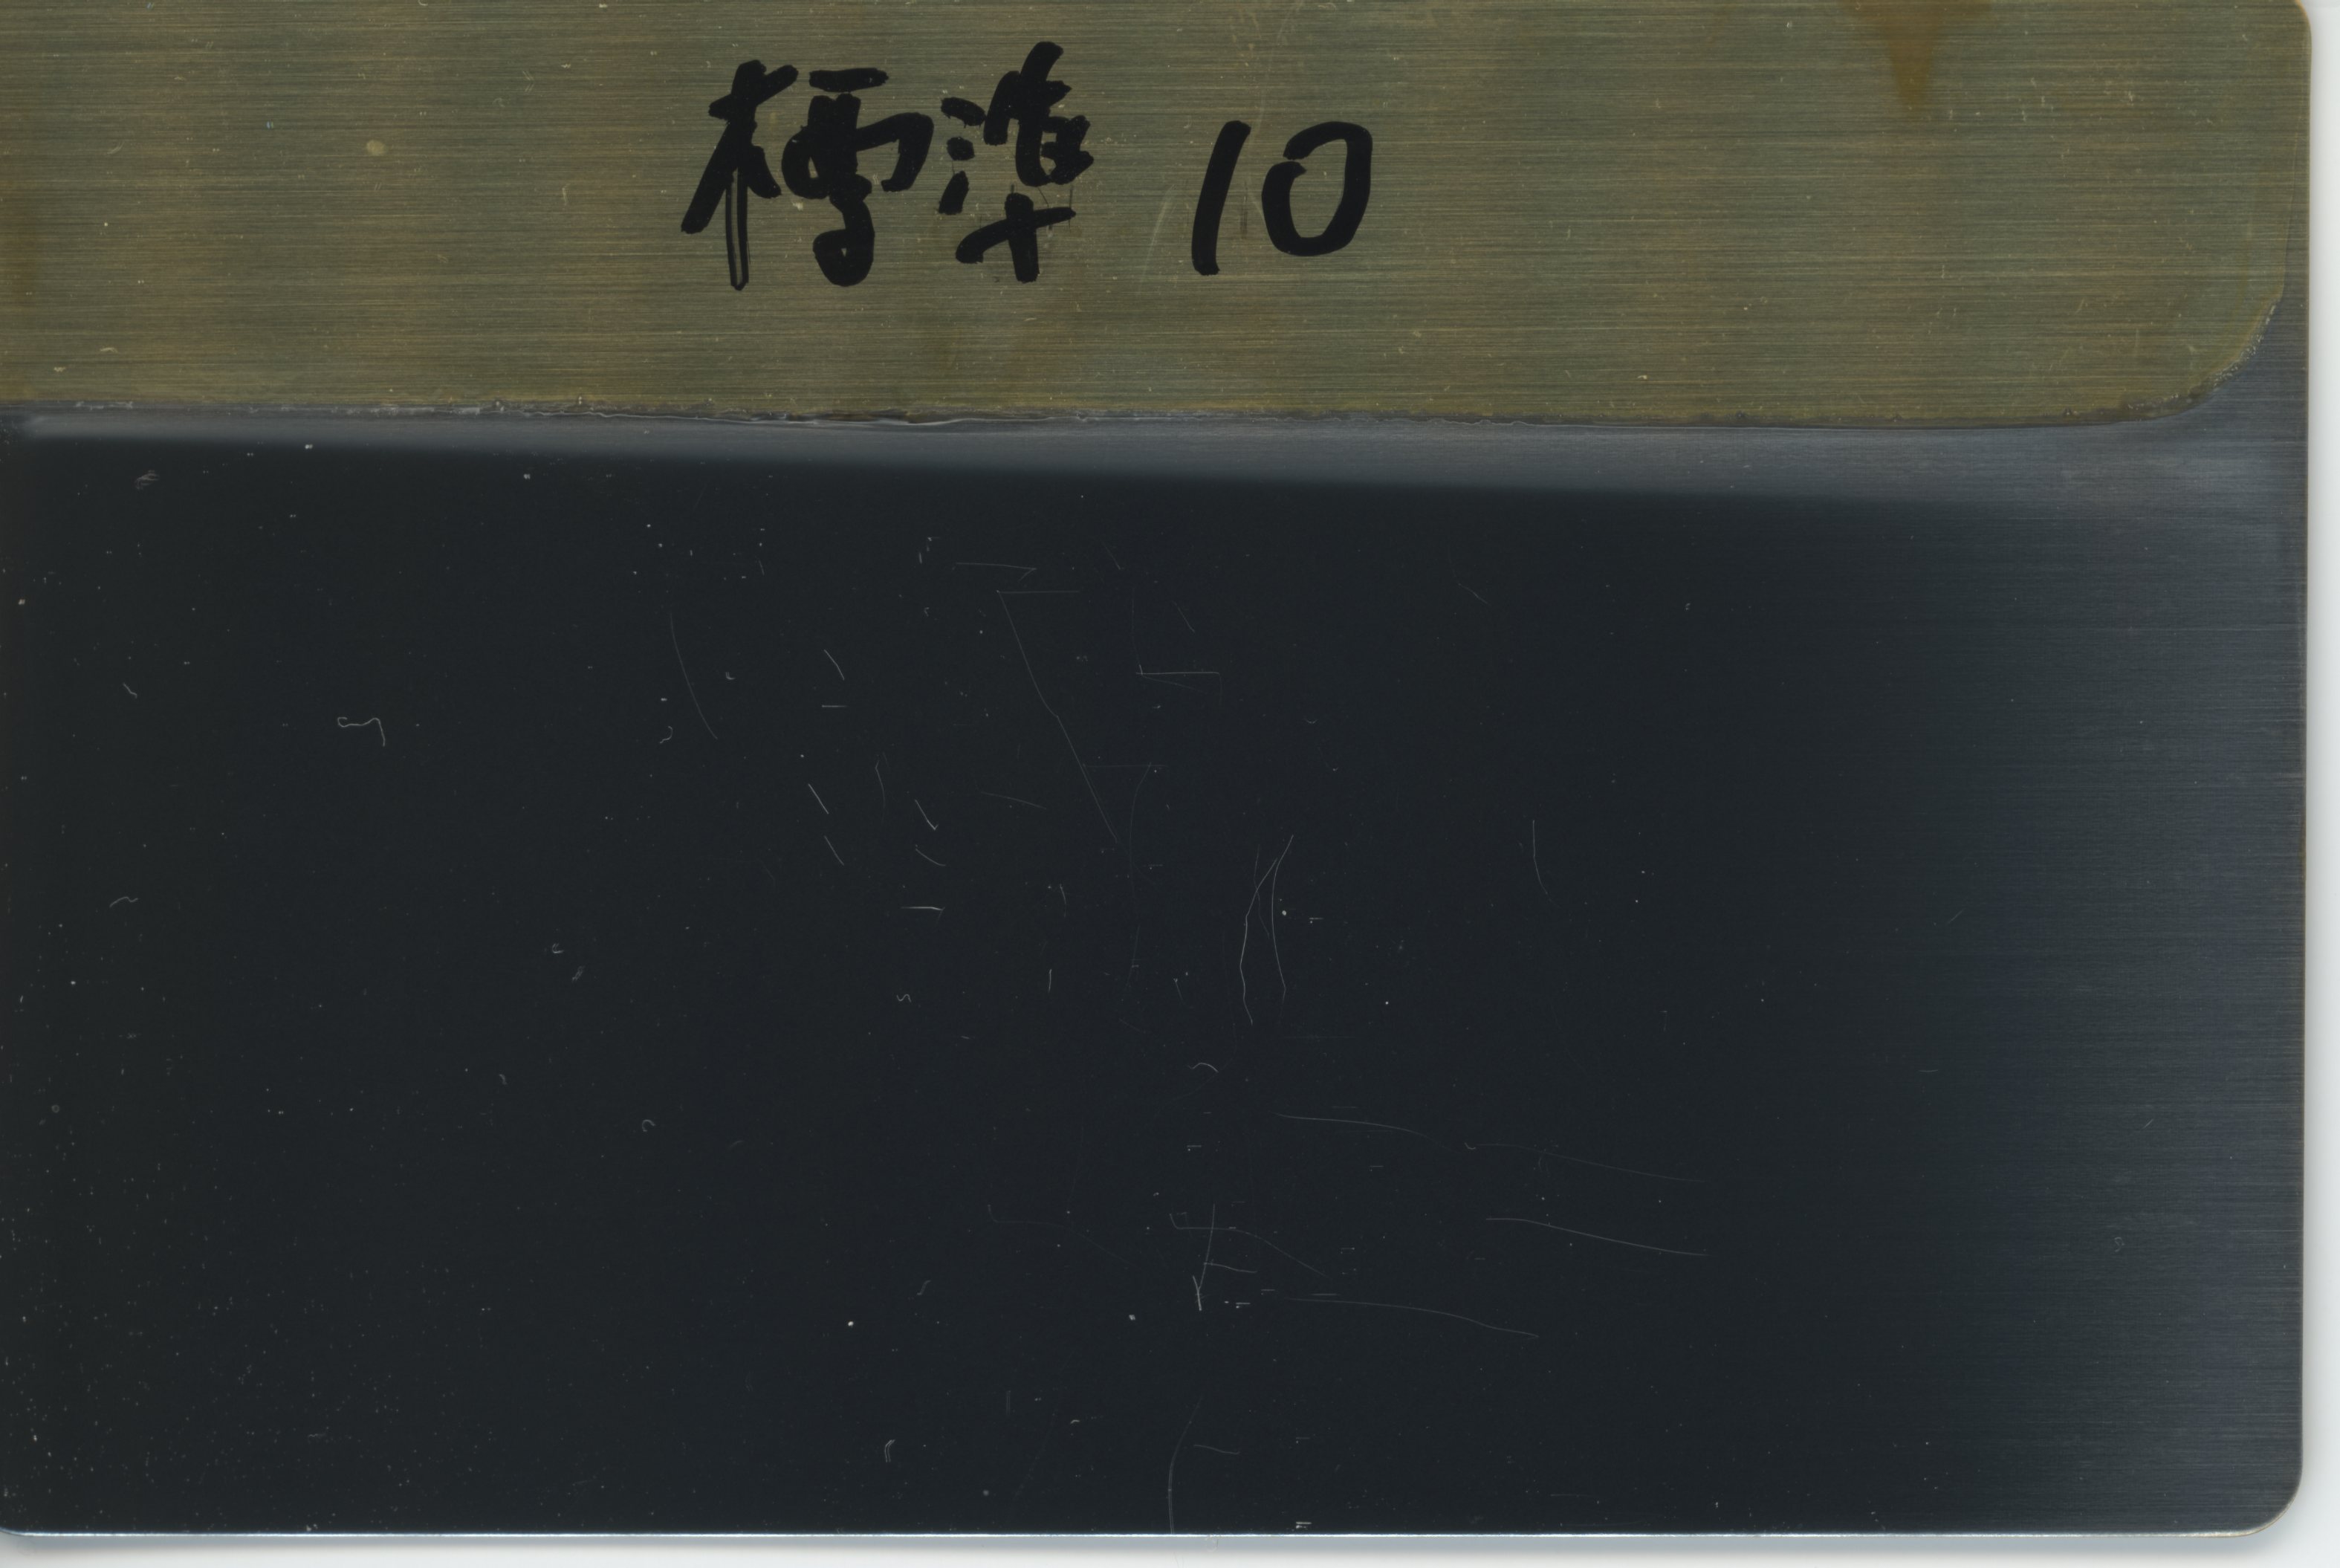 標準 10